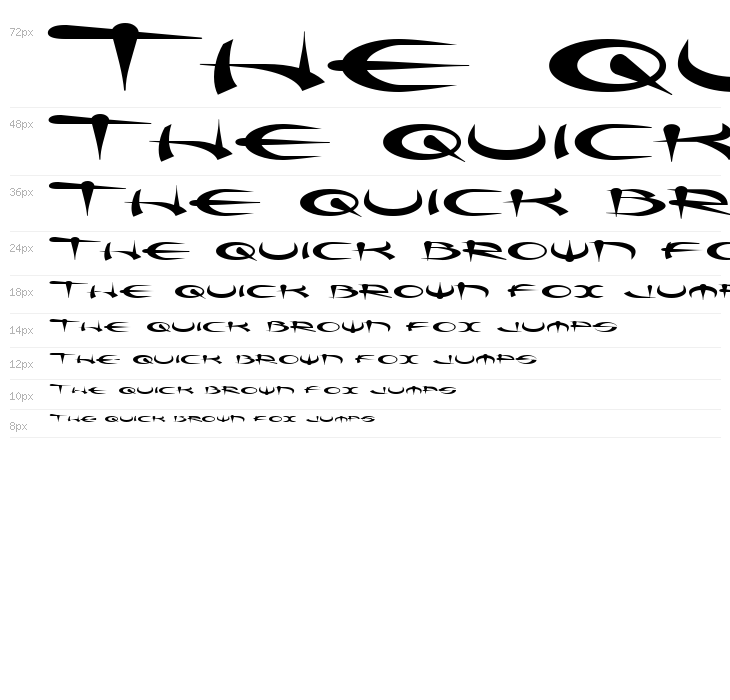 72px THE QU
48px THE QUICK
36px THE QUICK BR
24px THE QUICK BROWN FO
18px THE QUICK BROWN FOX JUMP
14px THE QUICK BROWN FOX JUMPS
12px THE QUICK BROWN FOX JUMPS
10px THE QUICK BROWN FOX JUMPS
8px THE QUICK BROWN FOX JUMPS